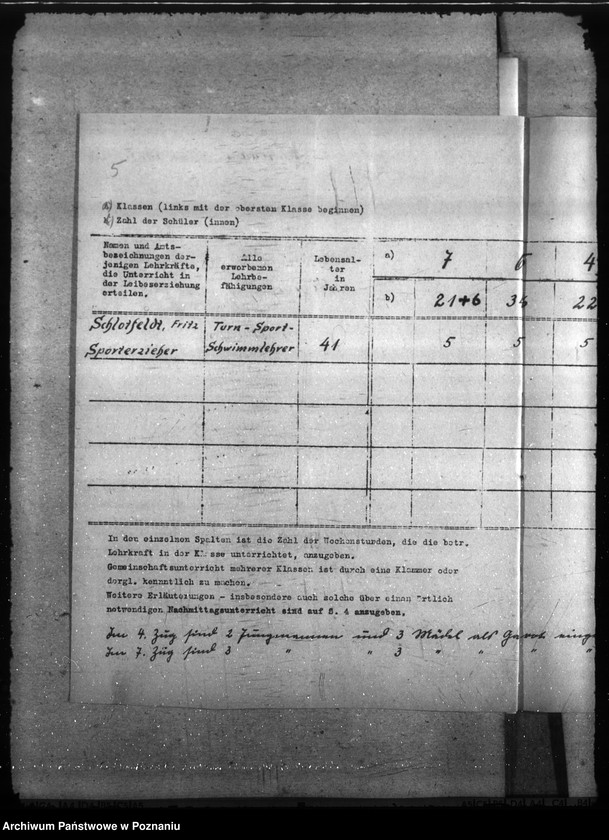 5
a) Klassen (links mit der obersten Klasse beginnen)
b) Zahl der Schüler (innen)
Namen und Amts-
bezeichnungen der-
jenigen Lehrkräfte,
die Unterricht in
der Leibeserziehung
erteilen.
Alle
erworbenen
Lehrbe-
fähigungen
Lebensal-
ter
in
Jahren
a) 7 6 4
b) 21+6 34 22
Schlotfeldt, Fritz Turn-Sport-
Sporterzieher Schwimmlehrer 41 5 5 5
In den einzelnen Spalten ist die Zahl der Wochenstunden, die die betr.
Lehrkraft in der Klasse unterrichtet, anzugeben.
Gemeinschaftsunterricht mehrerer Klassen ist durch eine Klammer oder
dergl. kenntlich zu machen.
Weitere Erläuterungen - insbesondere auch solche über einen örtlich
notwendigen Nachmittagsunterricht sind auf S. 4 anzugeben.
Im 4. Zug sind 2 Jungmannen und 3 Mädel als
Im 7. Zug sind 3 " " 3 " " " "
Archiwum Państwowe w Poznaniu